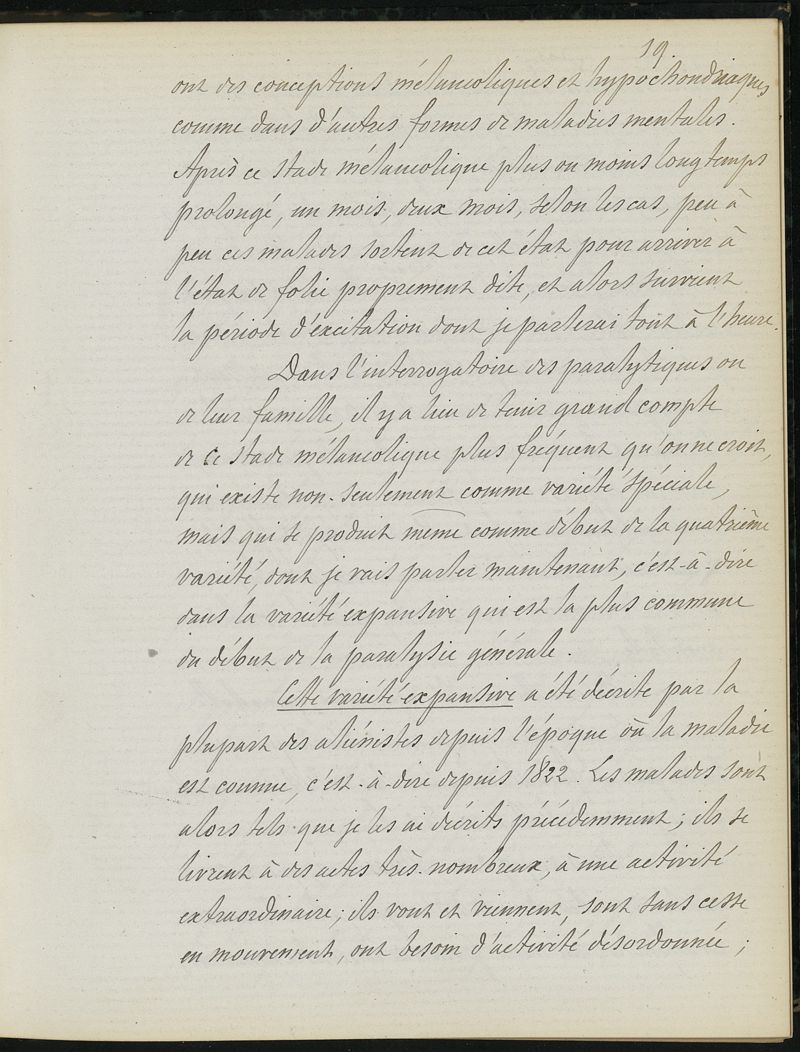 19.
ont des conceptions mélancoliques et hypochondriaques
comme dans d'autres formes de maladies mentales.
Après ce stade mélancolique plus ou moins longtemps
prolongé, un mois, deux mois, selon les cas, peu à
peu ces malades sortent de cet état pour arriver à
l'état de folie proprement dite, et alors survient
la période d'excitation dont je parlerai tout à l'heure.
Dans l'interrogatoire des paralytiques ou
de leur famille, il y a lieu de tenir grand compte
de ce stade mélancolique plus fréquent qu'on ne croit,
qui existe non-seulement comme variété spéciale,
mais qui se produit même comme début de la quatrième
variété, dont je vais parler maintenant, c'est-à-dire
dans la variété expansive qui est la plus commune
du début de la paralysie générale.
Cette variété expansive a été décrite par la
plupart des aliénistes depuis l'époque où la maladie
est connue, c'est-à-dire depuis 1822. Les malades sont
alors tels que je les ai décrits précédemment; ils se
livrent à des actes très-nombreux, à une activité
extraordinaire; ils vont et viennent, sont sans cesse
en mouvement, ont besoin d'activité désordonnée;